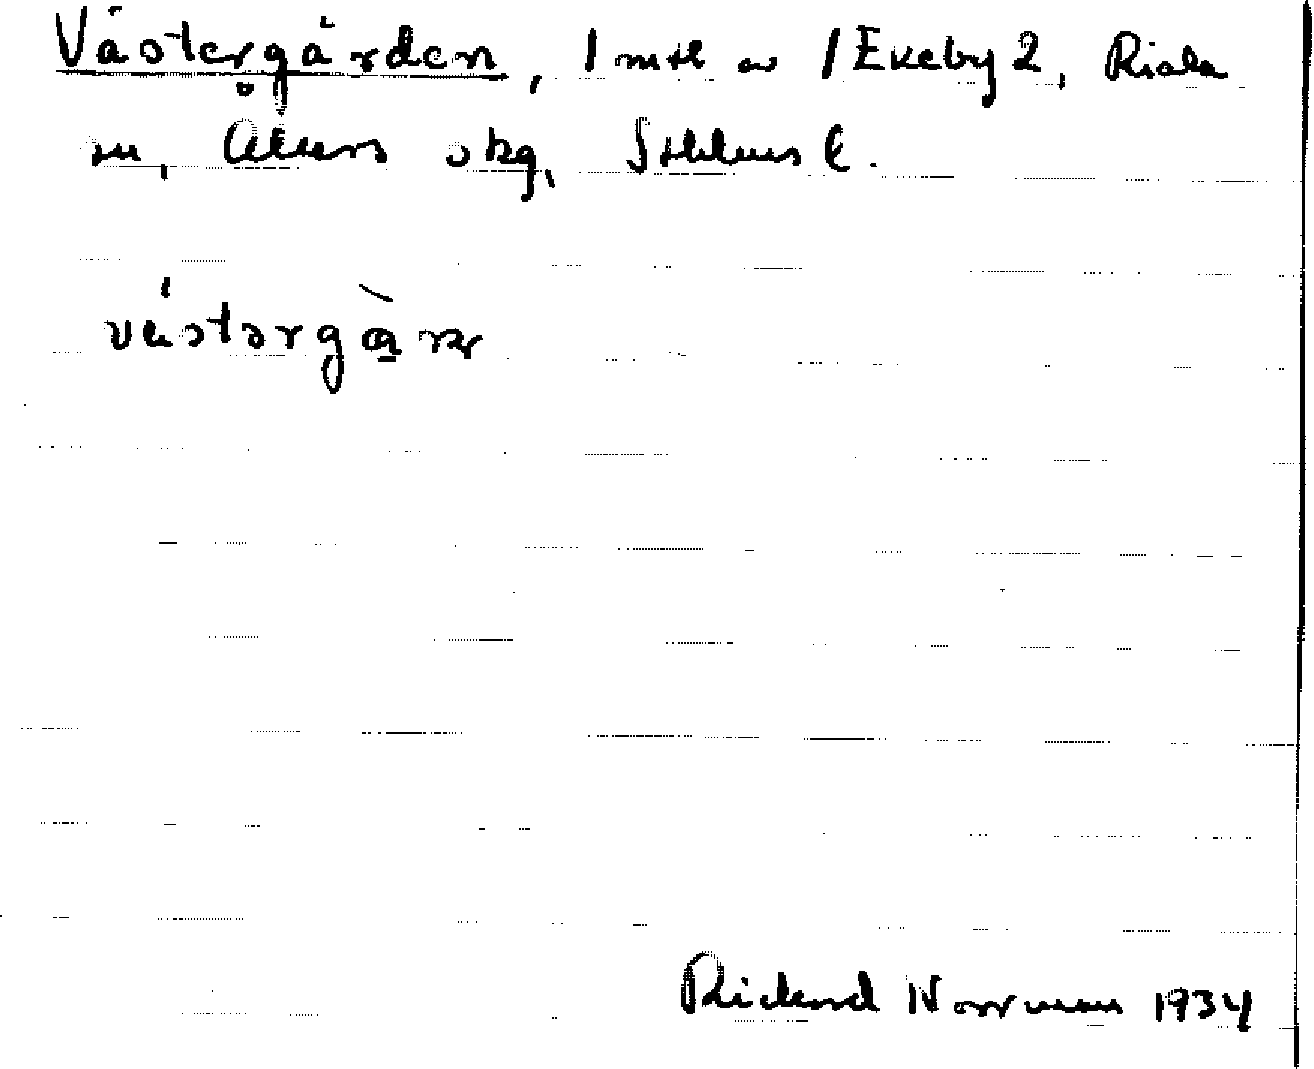 Västergården, 1 mtl av 1 Ekeby 2, Riala
sn, Åkers skg, Sthlms l.
västərgàṛn
Rickard Norrman 1934